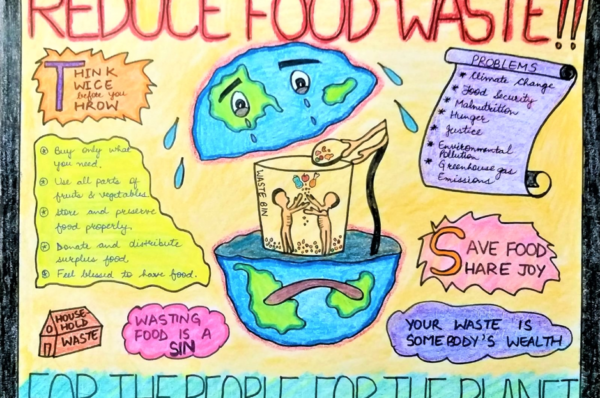 REDUCE FOOD WASTE!!
THINK
TWICE
before you
THROW
Buy only what
you need.
Use all parts of
fruits & vegetables.
Store and preserve
food properly.
Donate and distribute
surplus food
Feel blessed to have food.
HOUSE-
HOLD
WASTE
WASTING
FOOD IS A
SIN
WASTE BIN
PROBLEMS
Climate Change
Food Security
Malnutrition
Hunger
Justice
Environmental
Pollution
Greenhouse gas
Emissions
SAVE FOOD
SHARE JOY
YOUR WASTE IS
SOMEBODY'S WEALTH
FOR THE PEOPLE FOR THE PLANET